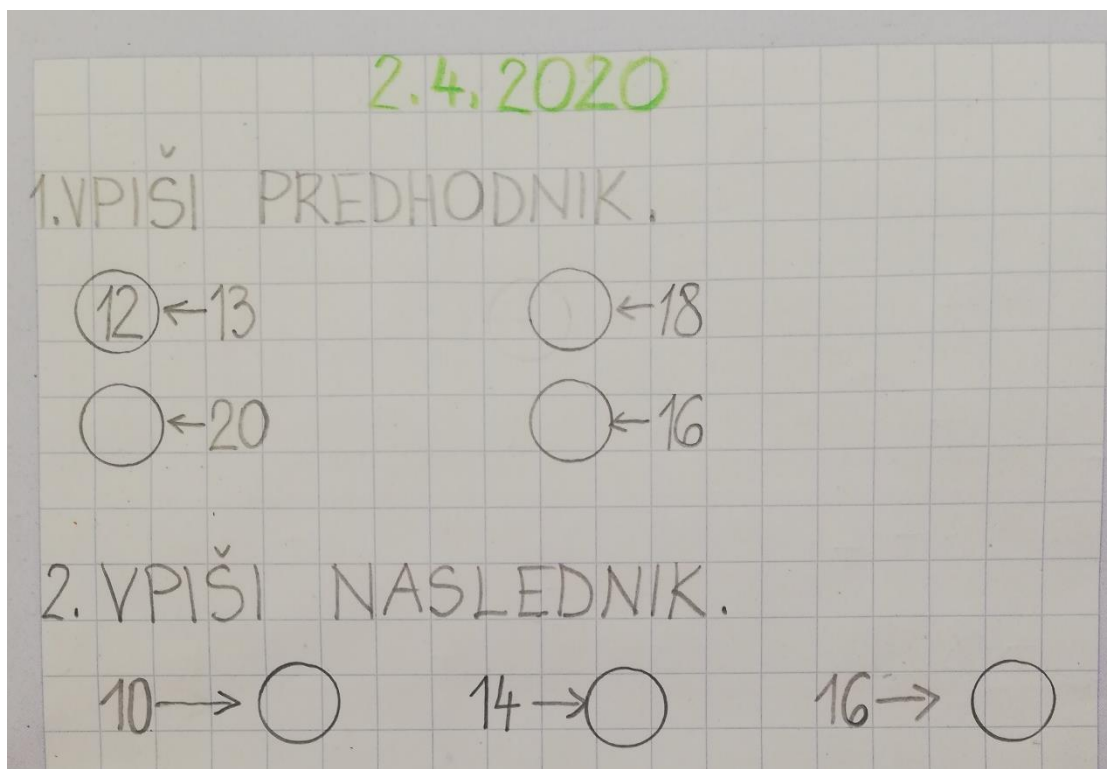 2.4.2020
1. VPIŠI PREDHODNIK.
12 ← 13 ← 18
← 20 ← 16
2. VPIŠI NASLEDNIK.
10 → 14 → 16 →